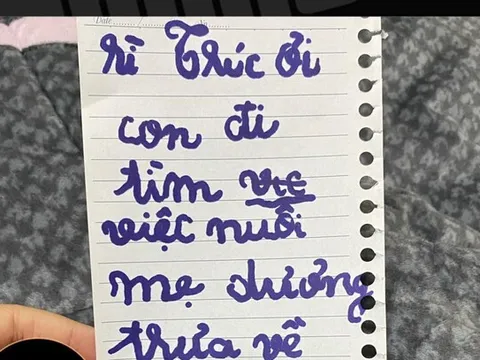 Date........./.........No.........
hì Thúc ơi
con đi
tìm vtc
việc nuôi
mẹ dương
trưa về